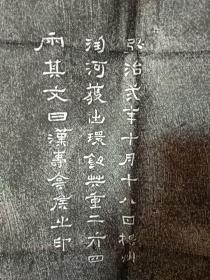 弘治弍年十月十八日楊州
淘河獲出環鈕共重二斤四
兩其文曰漢壽亭侯之印